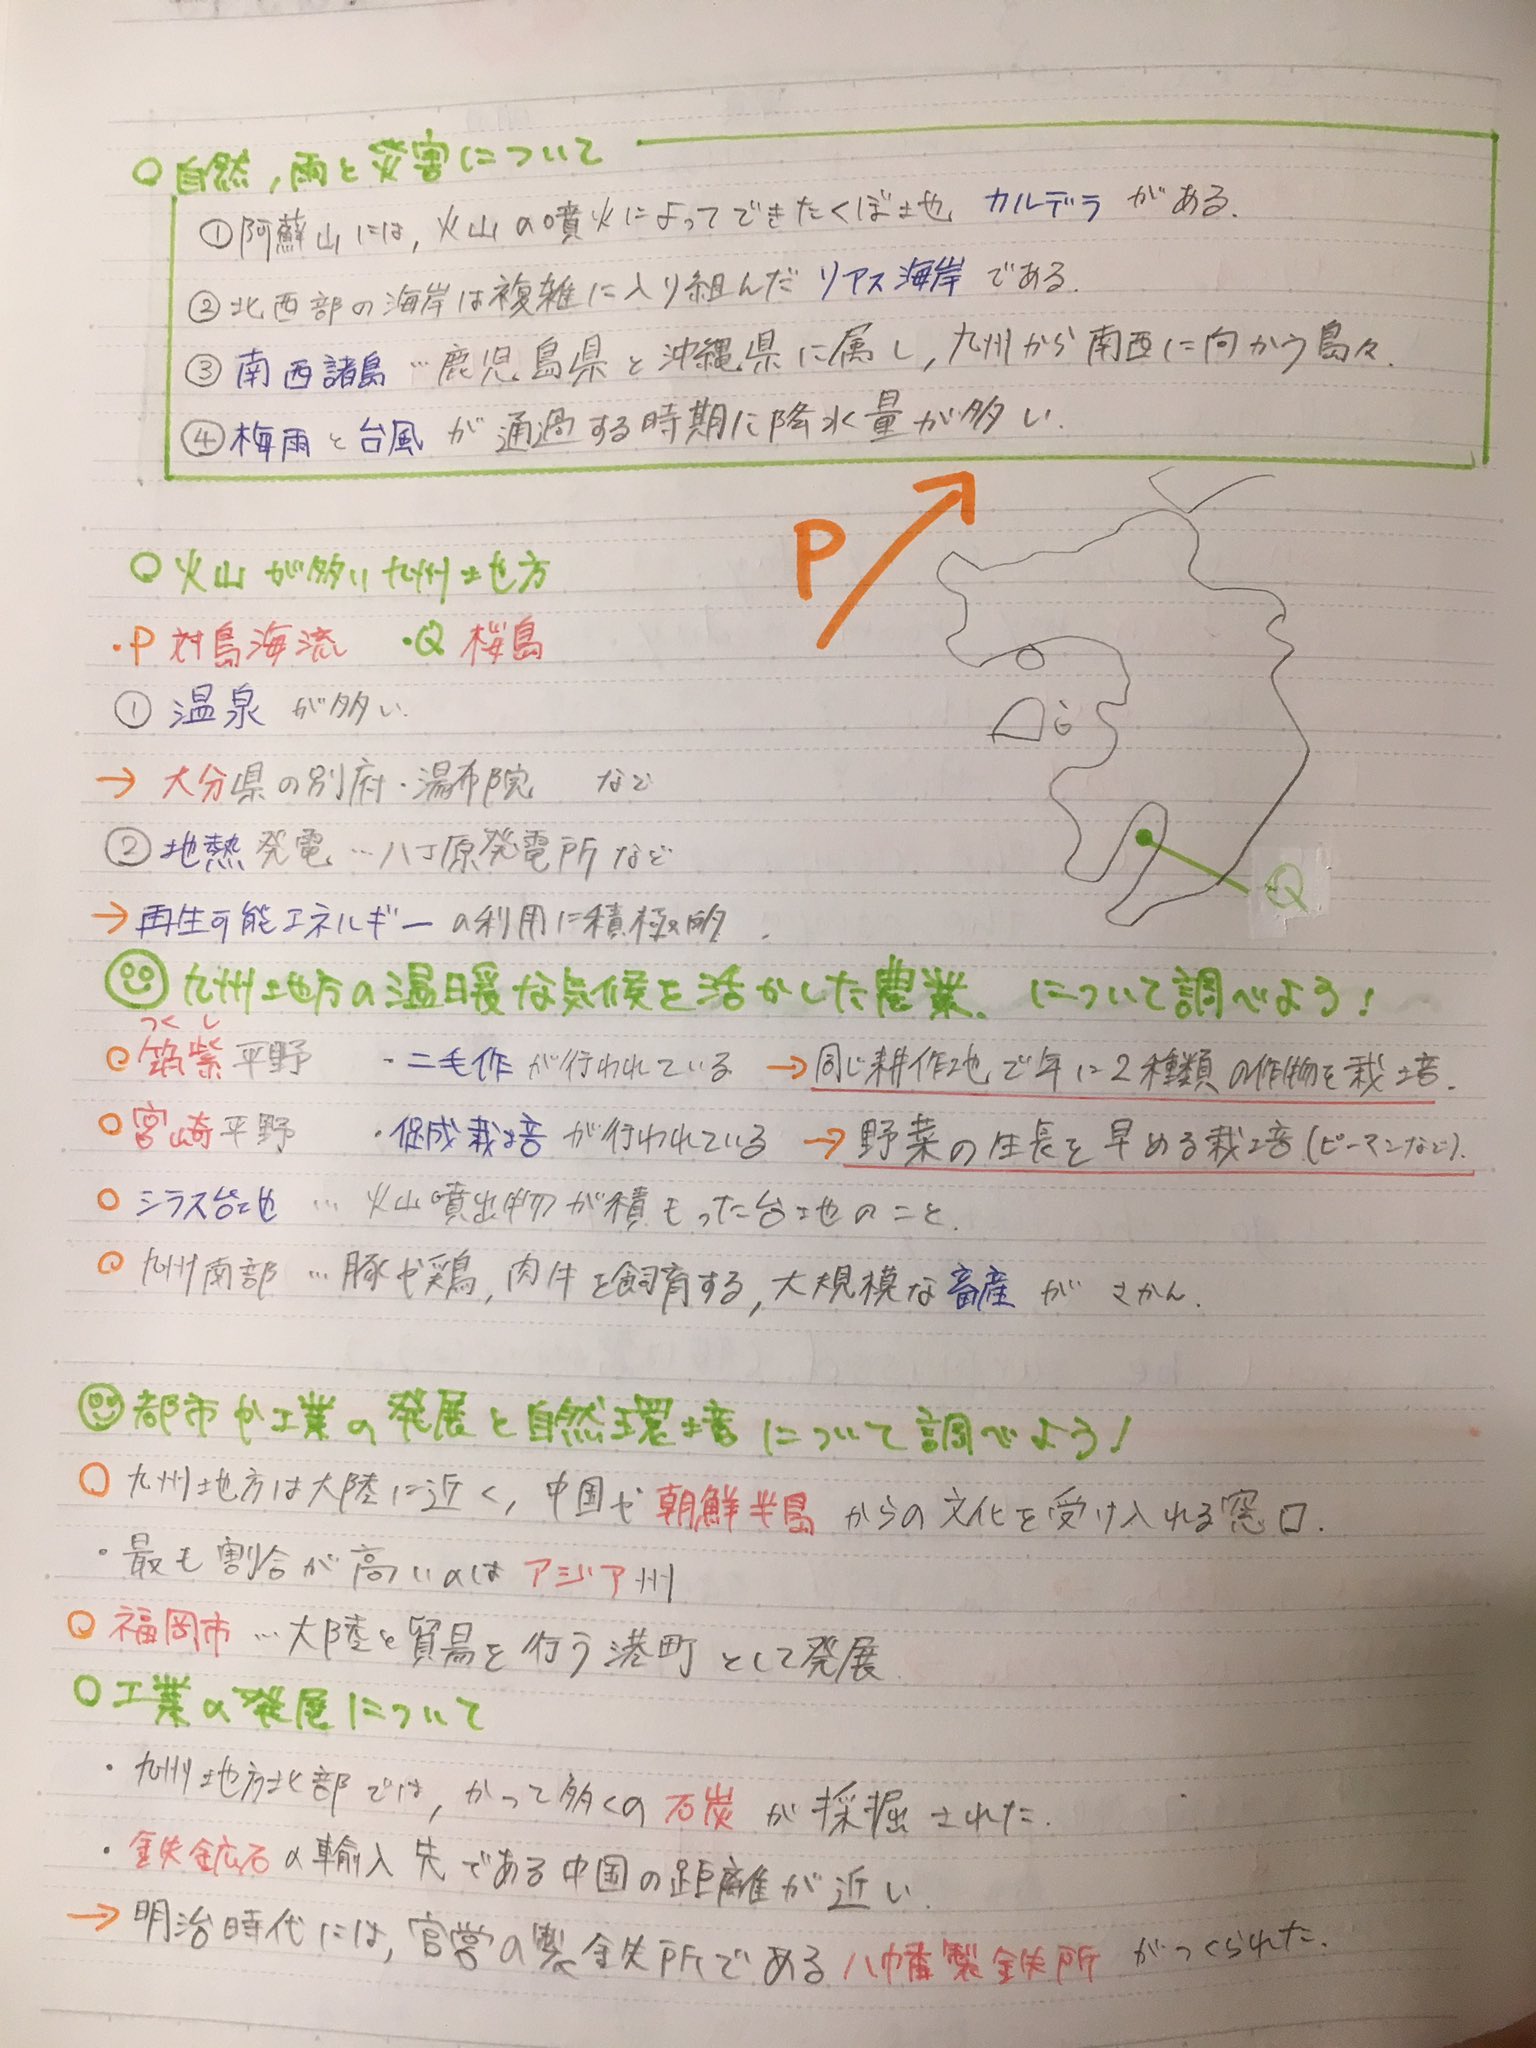 ○自然,雨と災害について
①阿蘇山には,火山の噴火によってできたくぼ地 カルデラ がある.
②北西部の海岸は複雑に入り組んだ リアス海岸 である.
③南西諸島…鹿児島県と沖縄県に属し,九州から南西に向かう島々.
④梅雨と台風 が通過する時期に降水量が多い.
P
○火山が多い九州地方
・P 対島海流 ・Q 桜島
① 温泉 が多い.
→ 大分県の別府・湯布院 など
② 地熱発電…八丁原発電所など
Q
→ 再生可能エネルギーの利用に積極的.
九州地方の温暖な気候を活かした農業.について調べよう!
つくし
○筑紫平野 ・二毛作が行われている →同じ耕作地で年に2種類の作物を栽培.
○宮崎平野 ・促成栽培が行われている →野菜の生長を早める栽培(ピーマンなど).
○シラス台地 … 火山噴出物が積もった台地のこと.
○九州南部 …豚や鶏,肉牛を飼育する,大規模な畜産が さかん.
都市や工業の発展と自然環境について調べよう!
○九州地方は大陸に近く,中国や朝鮮半島からの文化を受け入れる窓口.
・最も割合が高いのはアジア州
○福岡市…大陸と貿易を行う港町として発展
○工業の発展について
・九州地方北部では,かつて多くの石炭が採掘された.
・鉄鉱石の輸入先である中国の距離が近い
→ 明治時代には,官営の製鉄所である八幡製鉄所がつくられた.